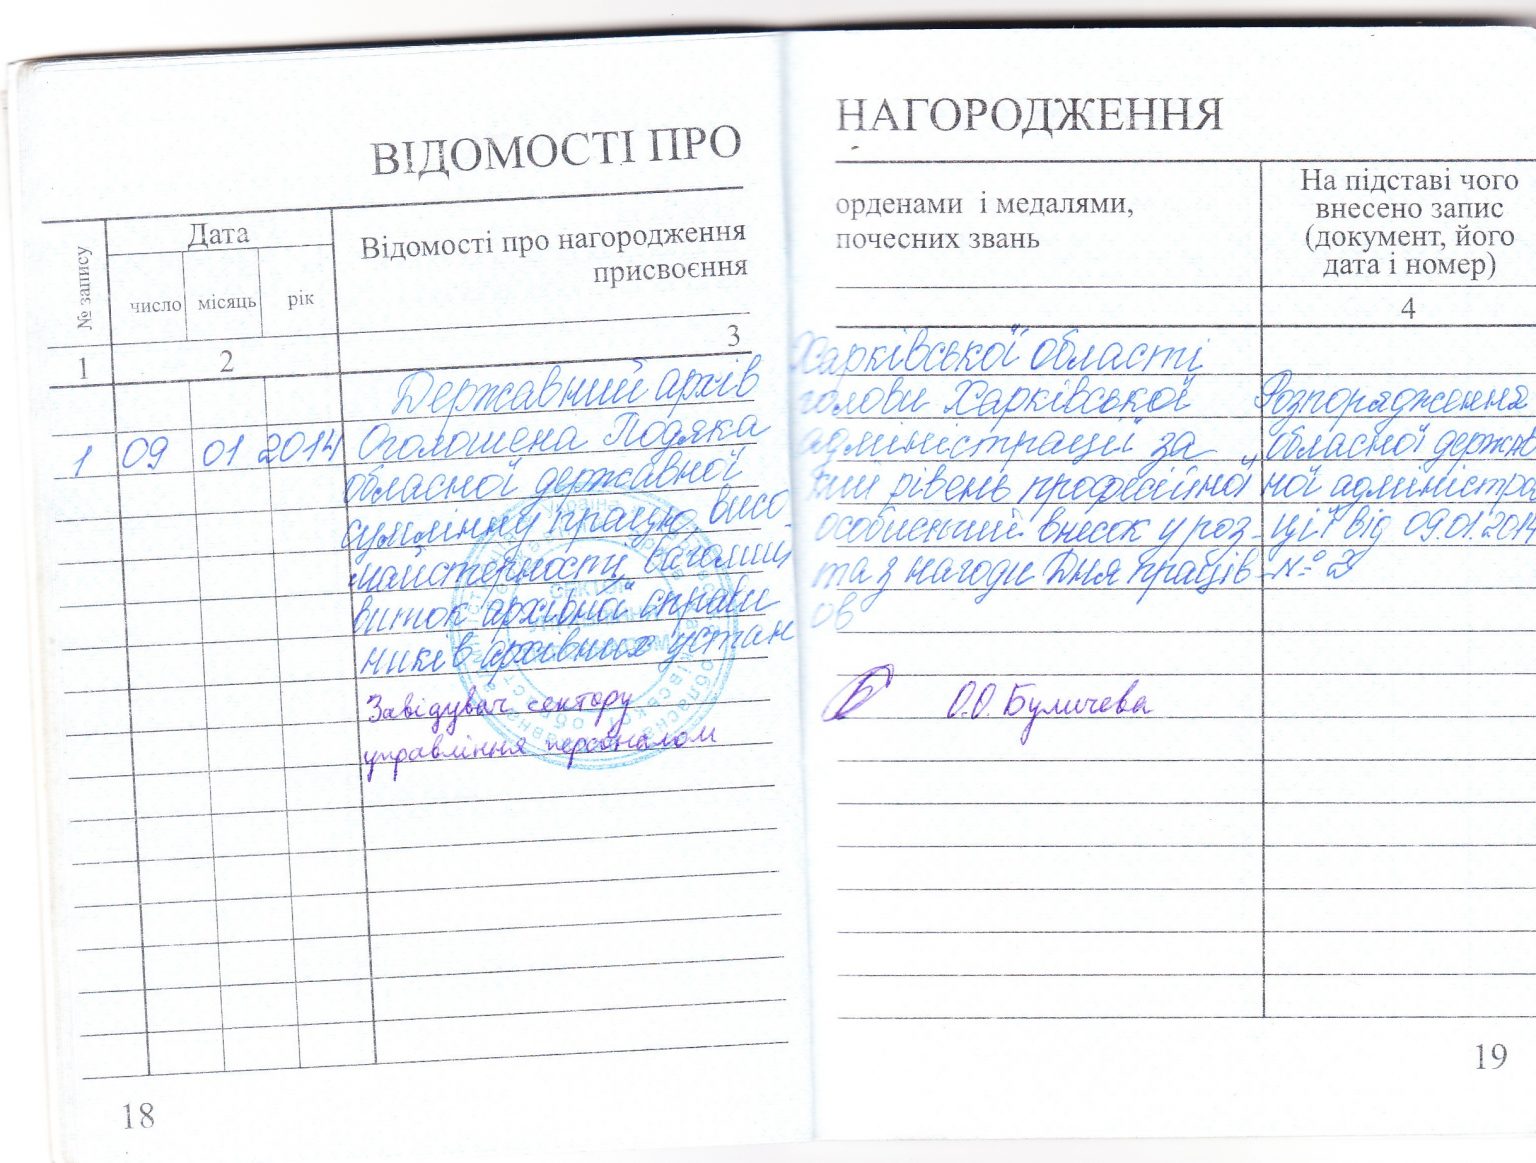 ВІДОМОСТІ ПРО НАГОРОДЖЕННЯ
№ запису
Дата
число місяць рік
Відомості про нагородження
присвоєння
орденами і медалями,
почесних звань
На підставі чого
внесено запис
(документ, його
дата і номер)
1 2 3 4
Державний архів Харківської області
1 09 01 2014 Оголошена Подяка голови Харківської
обласної державної адміністрації за
сумлінну працю, висо- кий рівень професійної
майстерності, вагомий особистий внесок у роз-
виток архівної справи та з нагоди Дня праців-
ників архівних устан ов
Розпорядження
обласної держав
ної адміністра
ції від 09.01.2014
№ 2
Завідувач сектору
управління персоналом
О.О. Буличева
18
19